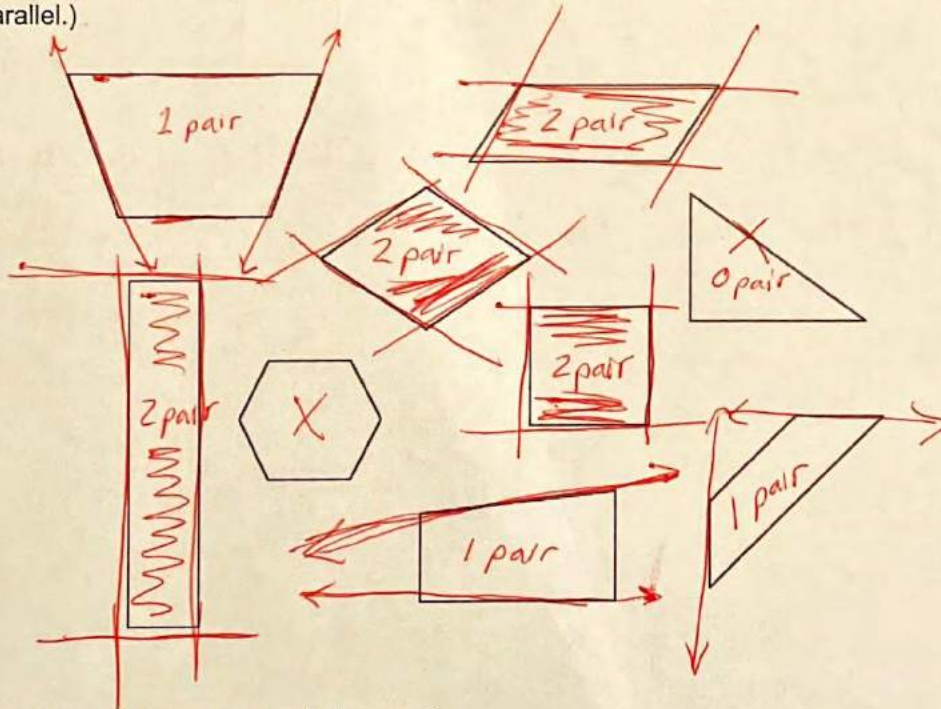 arallel.)
1 pair
2 pair
2 pair
0 pair
2 pair
2 pair
X
1 pair
1 pair